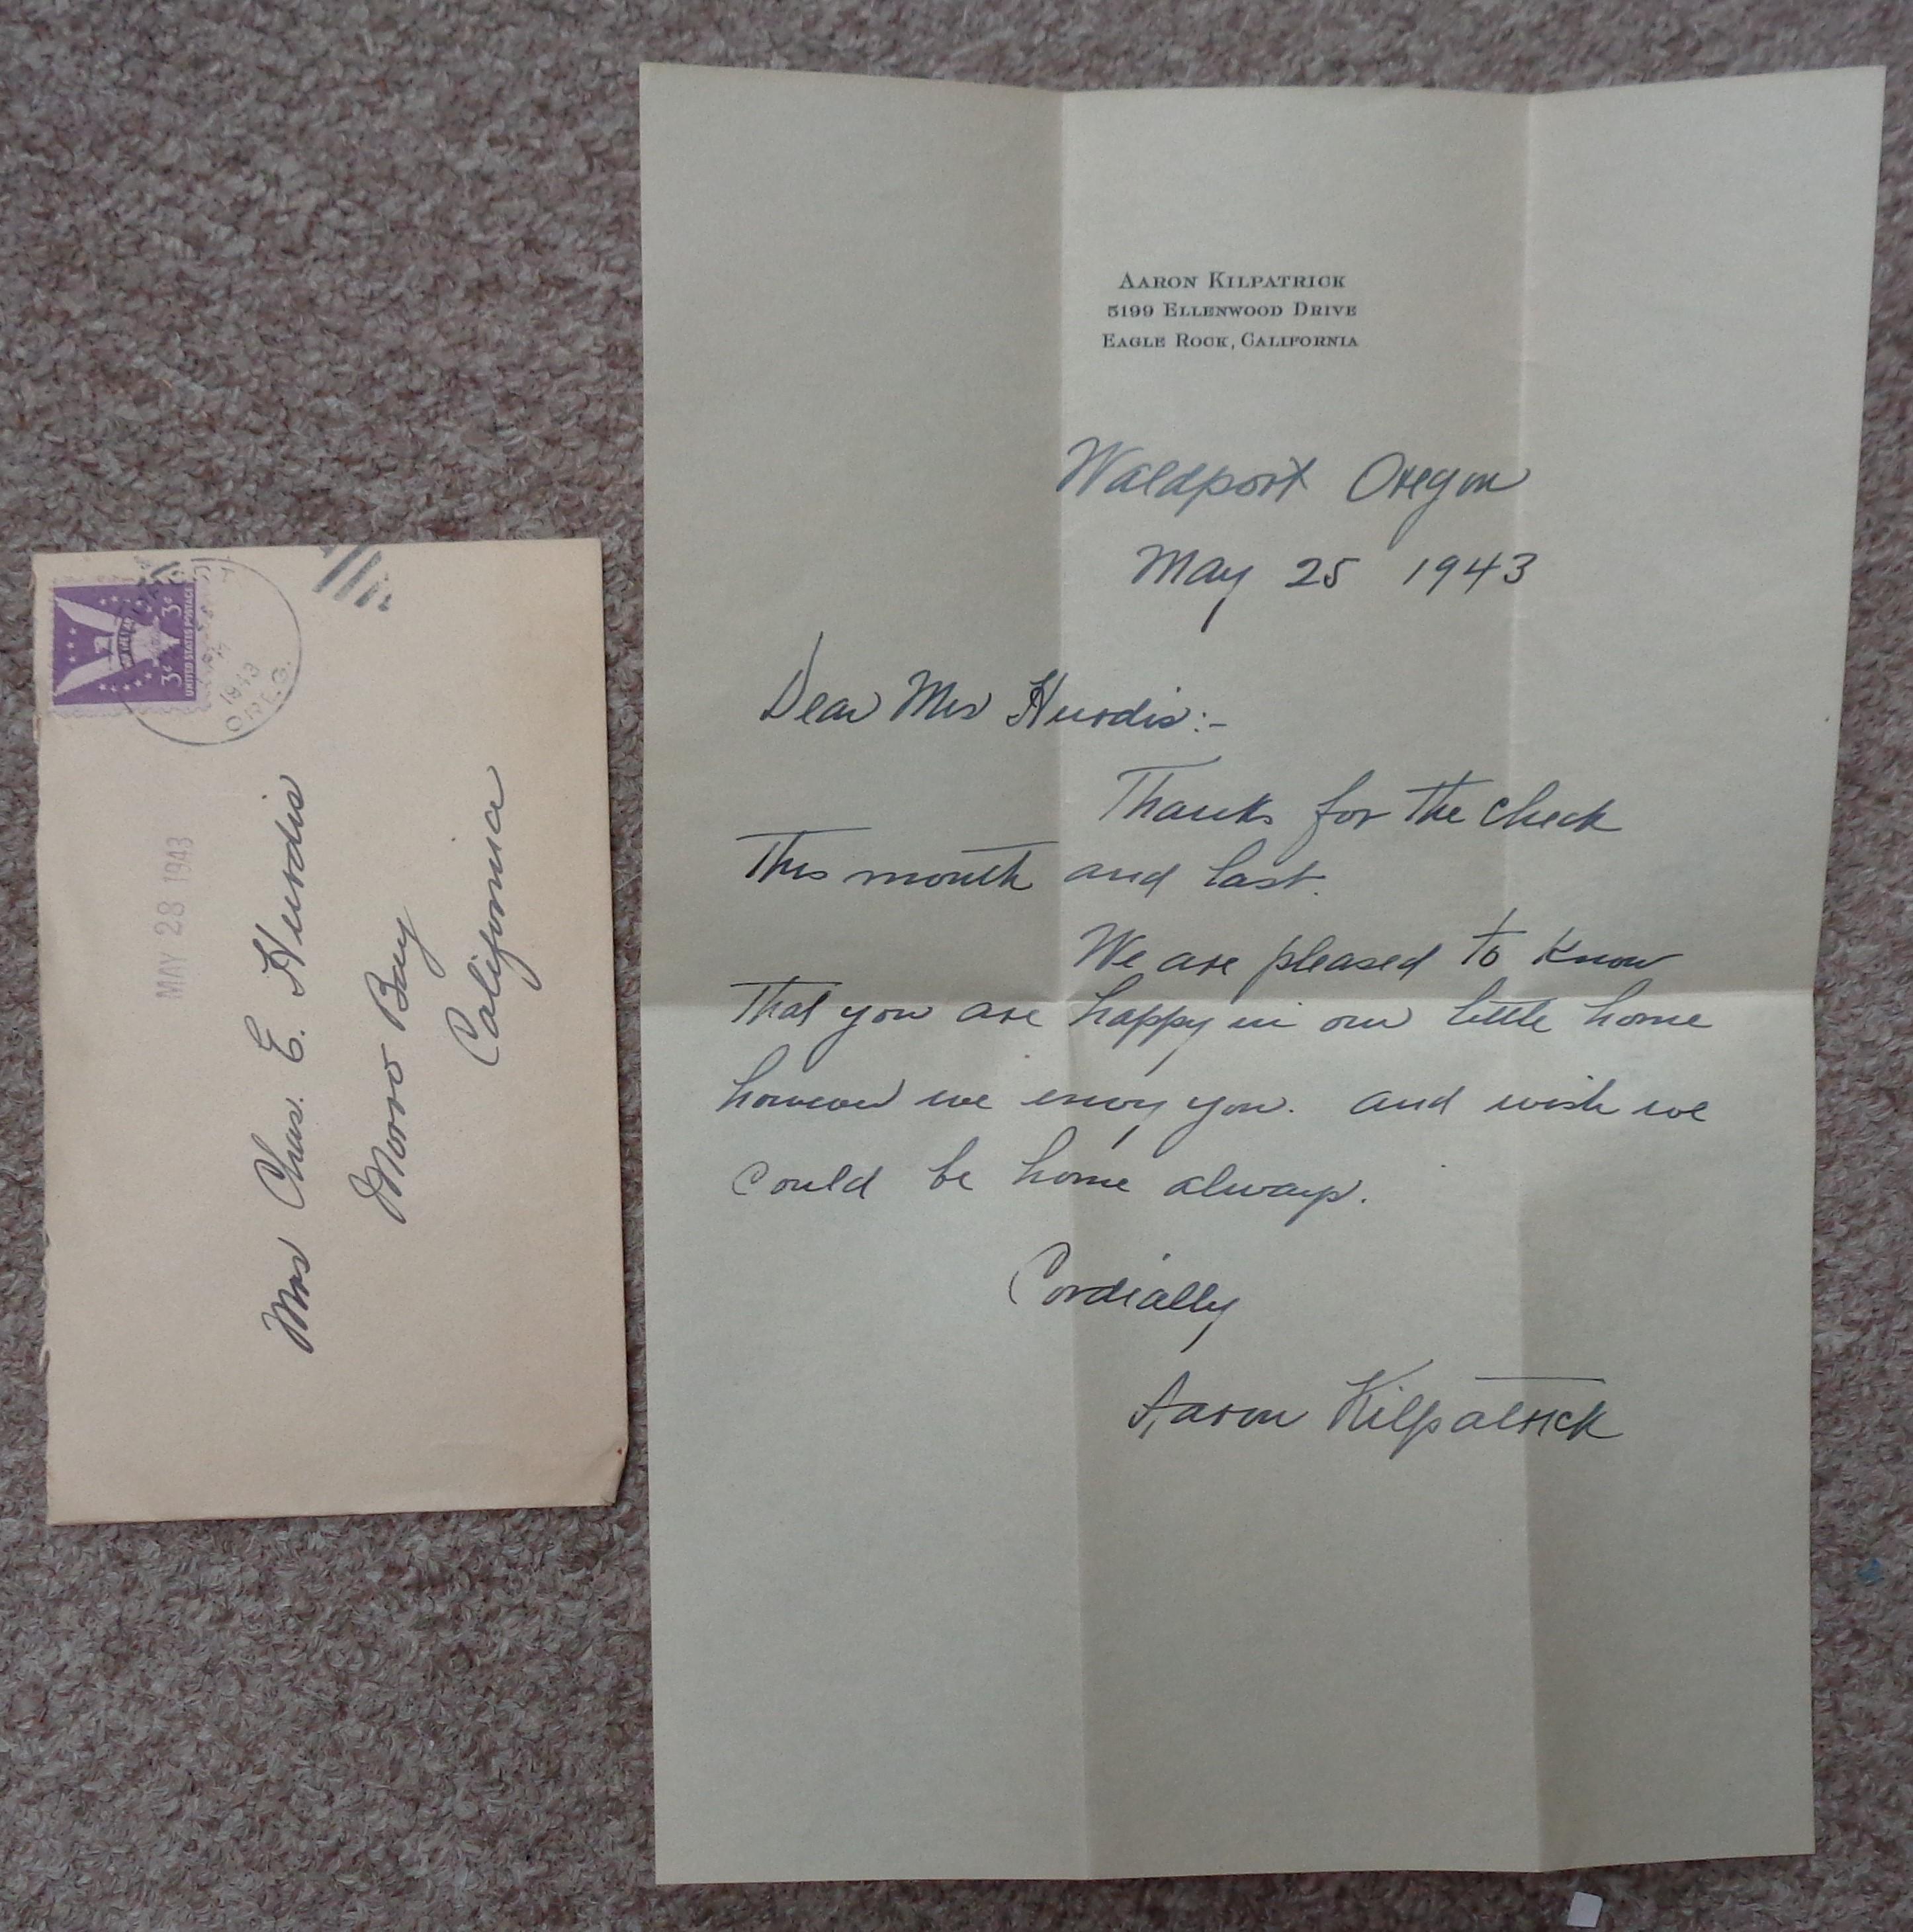 AARON KILPATRICK
5199 ELLENWOOD DRIVE
EAGLE ROCK, CALIFORNIA
Waldport Oregon
May 25 1943
Dear Mrs Hurdis:-
Thanks for the check
This month and last.
We are pleased to know
That you are happy in our little home
however we envy you. and wish we
could be home always.
Cordially
Aaron Kilpatrick
3¢ 3¢
UNITED STATES POSTAGE
1943
OREG.
MAY 28 1943
Mrs Chas. E. Hurdis
Morro Bay
California